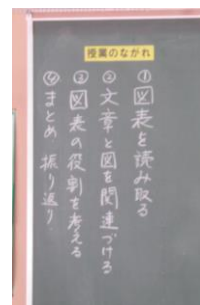 授業のながれ
①図表を読み取る
②文章と図を関連づける
③図表の役割を考える
④まとめ 振り返り